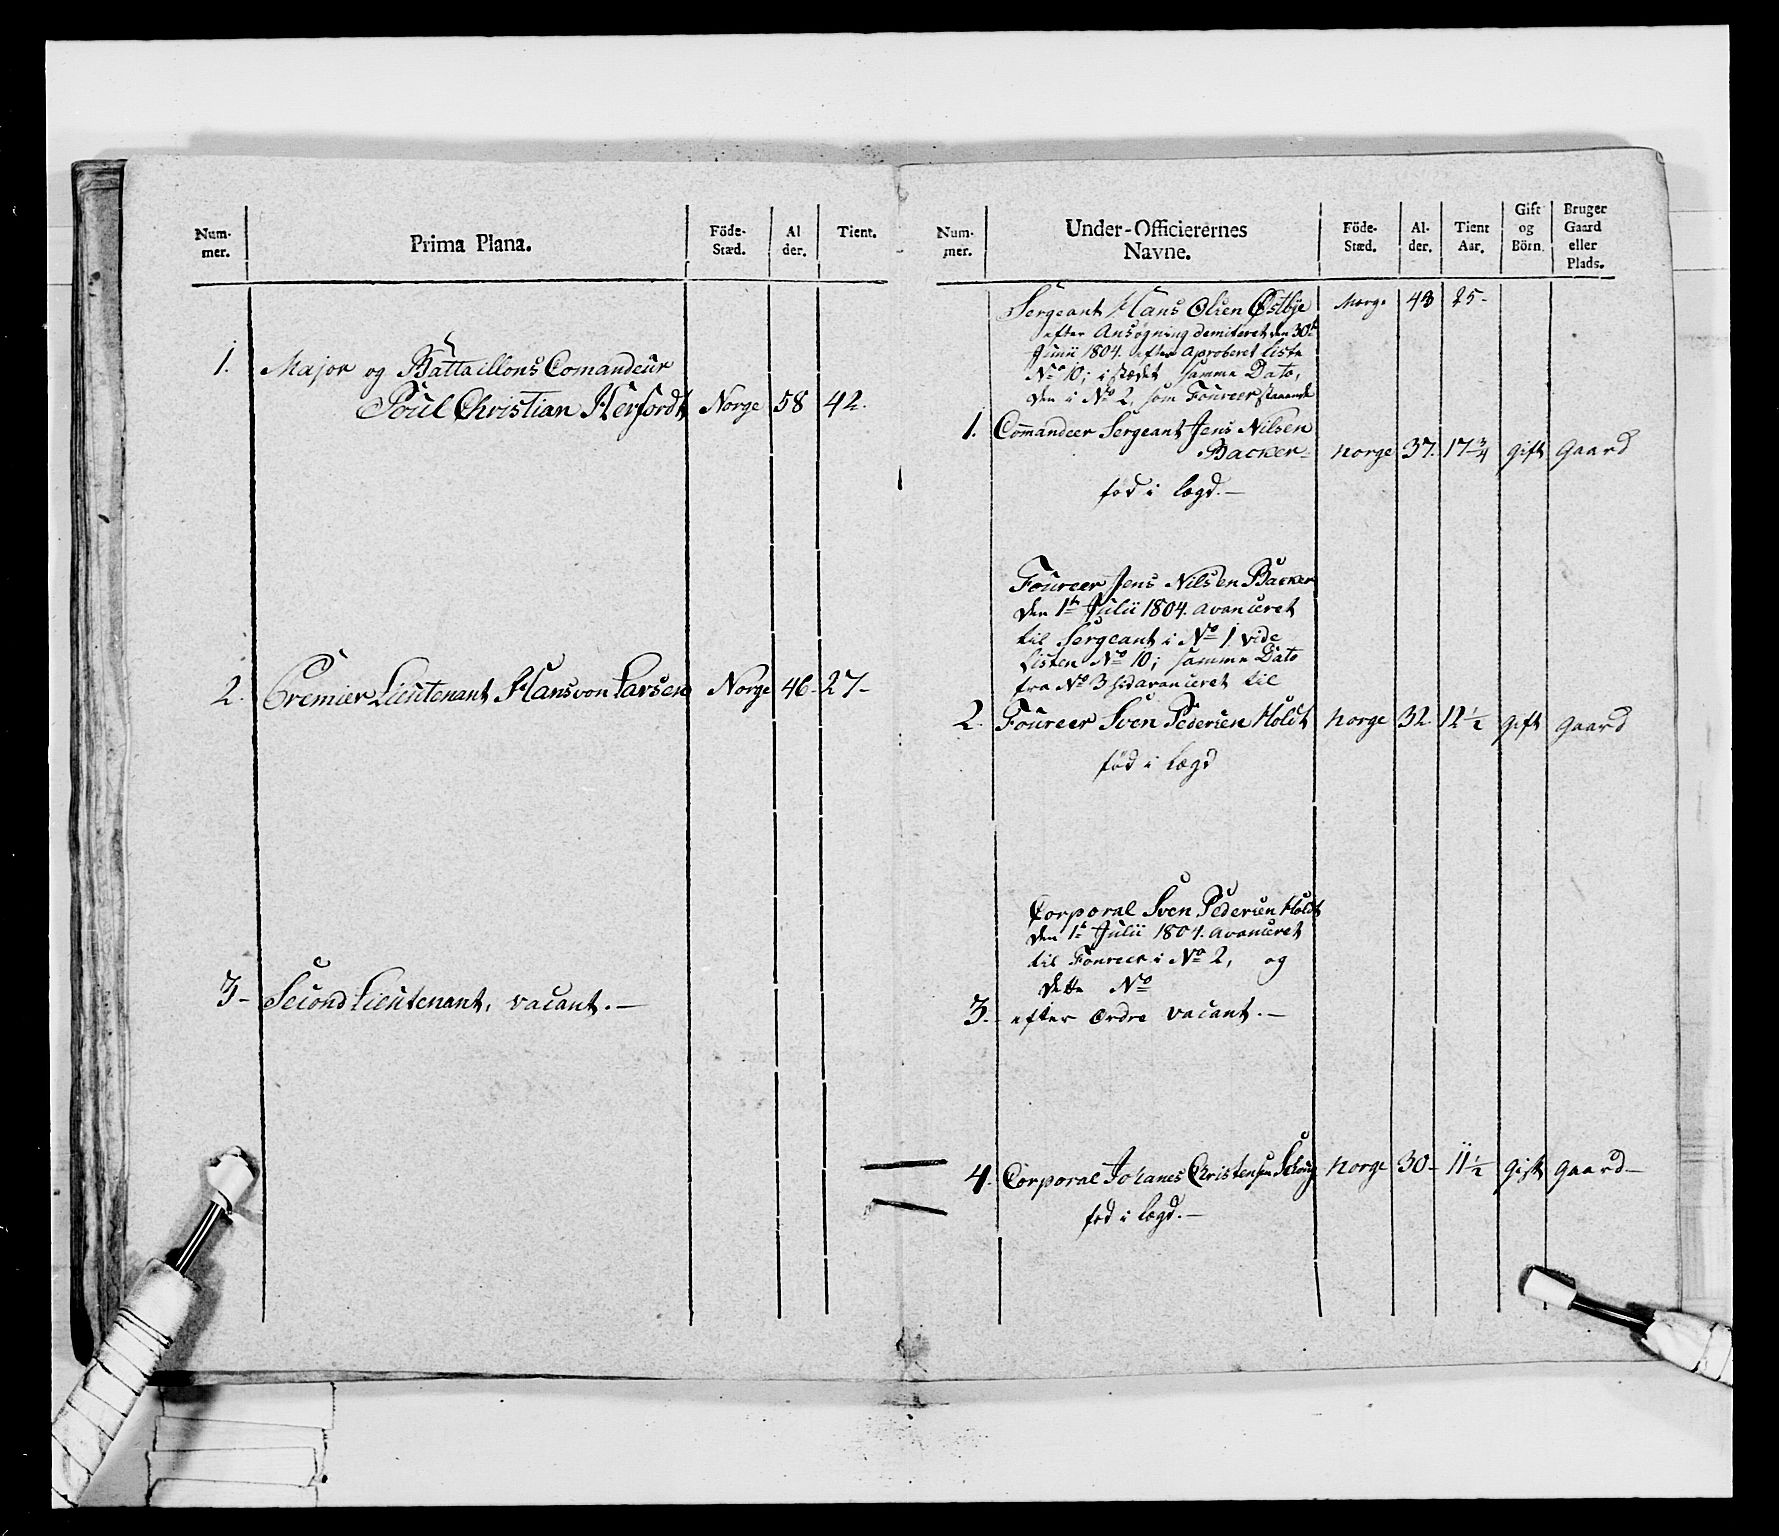 Num-
mer.
Prima Plana.
Föde-
Stæd.
Al
der.
Tient.
1. Major og Battaillons Comandeur
Poul Christian Herfordt Norge 58 42.
2. Premier Lieutenant Hans von Larsen Norge 46- 27-
3- Second Lieutenant, vacant.-
Num-
mer.
Under-Officierernes
Navne.
Föde-
Stæd.
Al-
der.
Tient
Aar.
Gift
og
Börn.
Bruger
Gaard
eller
Plads.
Sergeant Hans Olsen Østbye Norge 48 25-
efter Ansøgning demiteret den 30te
Junii 1804. efter aproberet Liste
No 10; i stædet samme Dato,
den i No 2, som Foureer staaende
1. Comandeer Sergeant Jens Nilsen
Backer- Norge 37. 17 3/4 gift gaard
fød i Lægd.-
Foureer Jens Nilsen Backer
den 1te Julii 1804. avanceret
til Sergeant i No 1 vide
Listen No 10; samme Dato
fra No 3 hid avanceret til
2. Foureer Sven Pedersen Holdt Norge 32. 12 1/2 gift gaard
fød i Lægd
Corporal Sven Pedersen Holdt
den 1te Julii 1804. avanceret
til Foureer i No 2, og
dette No
3.- efter Ordre vacant.-
4. Corporal Johanes Christensen Norge 30- 11 1/2 gift gaard-
fød i Lægd.-